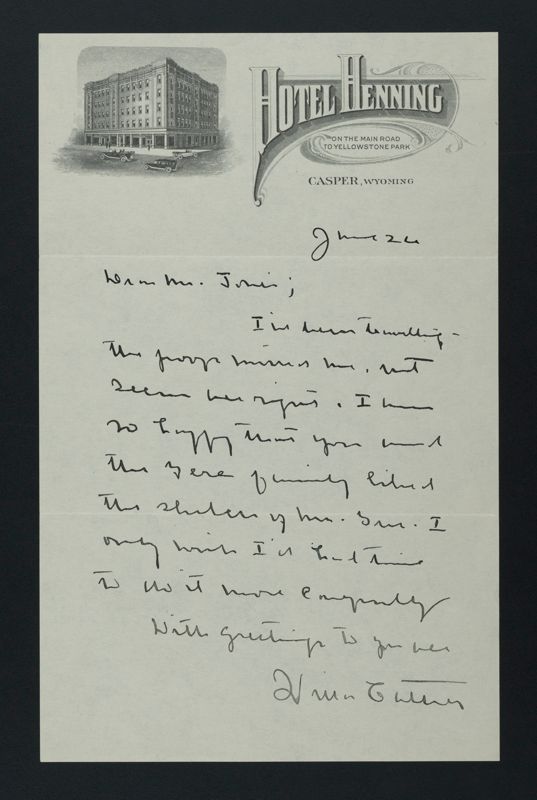 HOTEL HENNING
ON THE MAIN ROAD
TO YELLOWSTONE PARK
CASPER, WYOMING
June 24
Dear Mr. Jones;
I've been travelling -
the proof missed me, but
seems all right. I am
so happy that you and
the Gere family liked
the sketch of Mr. Gere. I
only wish I'd had time
to do it more carefully
With greetings to you all
Willa Cather